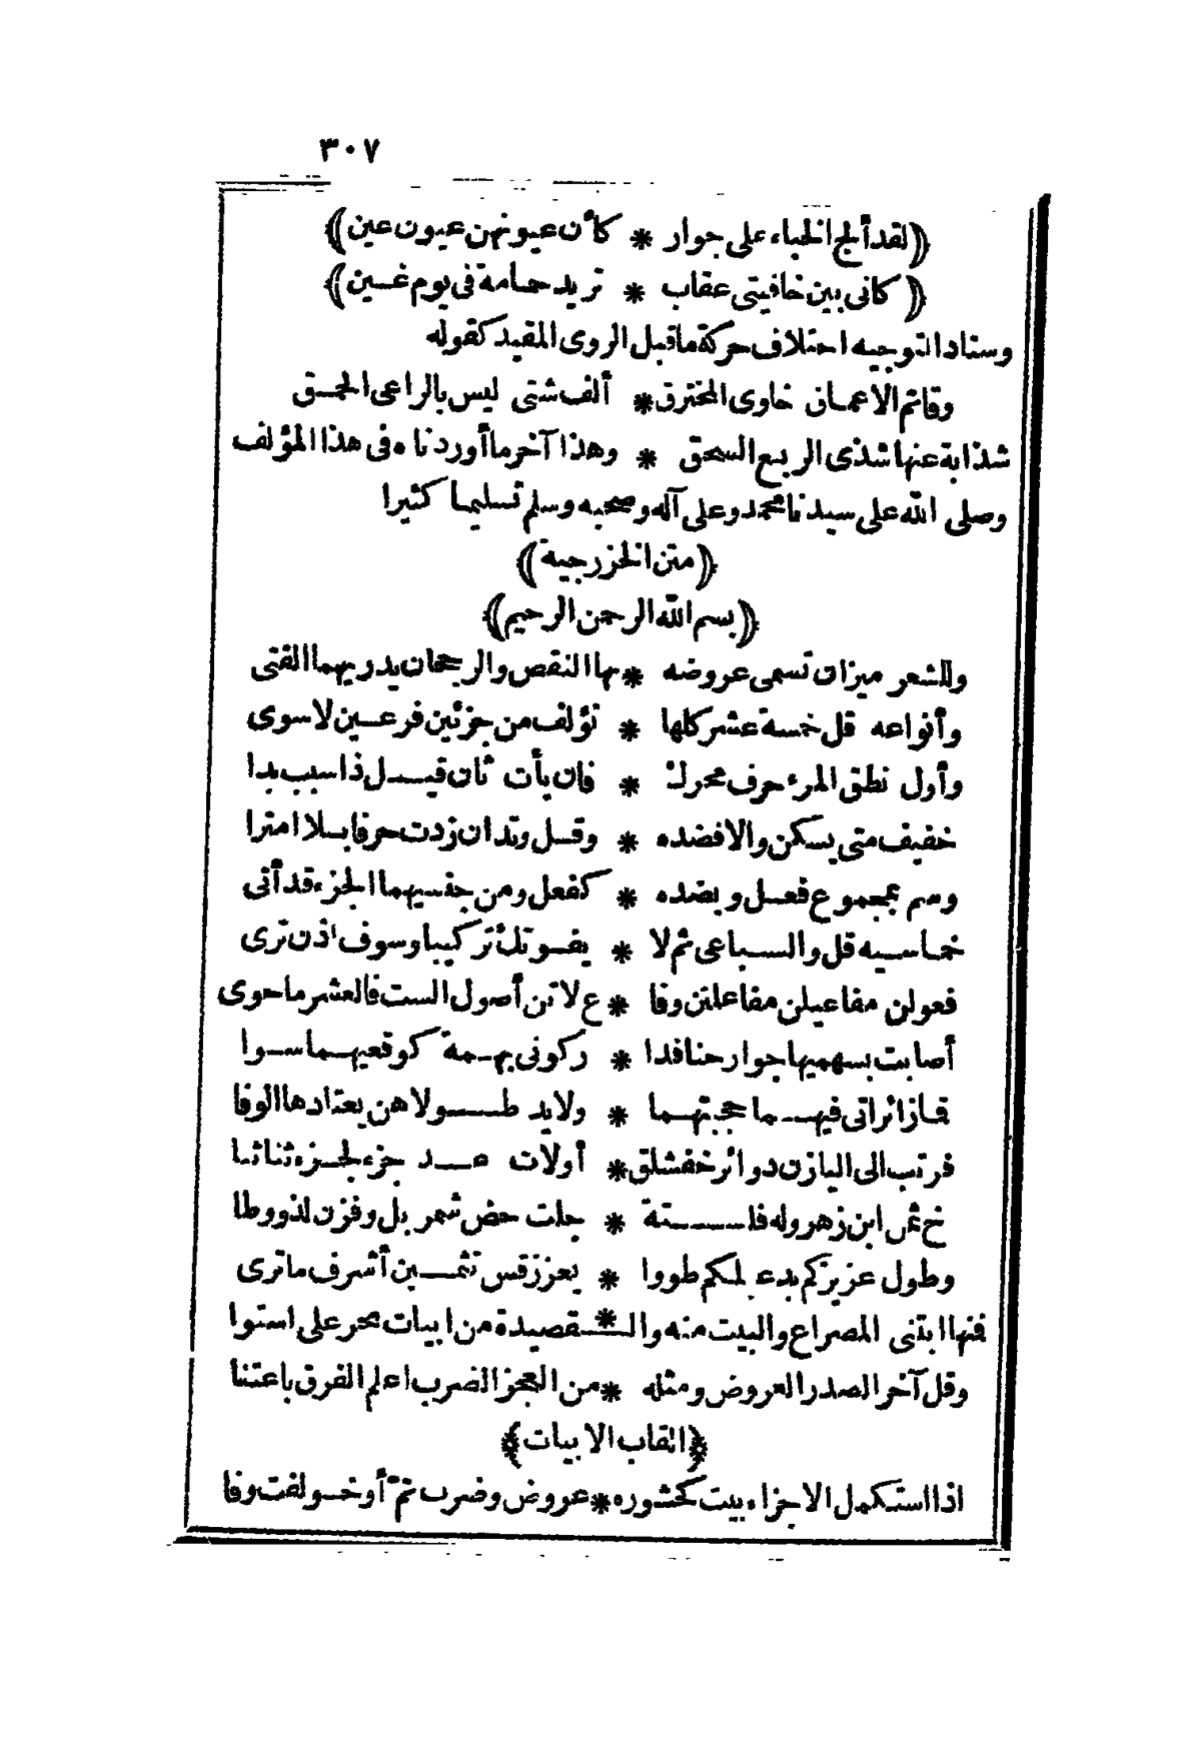 ٣٠٧
﴿لقد ألج الخباء على جوار * كأن عيونهن عيون عين﴾
﴿كانى بين خافيتى عقاب * تريد حمامة فى يوم غين﴾
وسناد التوجيه اختلاف حركة ما قبل الروى المقيد كقوله
وقاتم الاعماق خاوى المخترق * ألف شتى ليس بالراعى الحمق
شذابة عنها شذى الربع السحق * وهذا آخر ما أوردناه فى هذا المؤلف
وصلى الله على سيدنا محمد وعلى آله وصحبه وسلم تسليما كثيرا
﴿متن الخزرجية﴾
﴿بسم الله الرحمن الرحيم﴾
وللشعر ميزان تسمى عروضه * بها النقص والرجحان يدريهما الفتى
وأنواعه قل خمسة عشر كلها * تؤلف من جزئين فرعين لا سوى
وأول نطق المرء حرف محرك * فان يأت ثان قيل ذا سبب بدا
خفيف متى يسكن والا فضده * وقل وتد ان زدت حرفا بلا امترا
وسم بمجموع فعل وبضده * كفعل ومن جنسيهما الجزء قد أتى
خماسيه قل والسباعى ثم لا * يفوتك تركيبا وسوف اذن ترى
فعولن مفاعيلن مفاعلتن وفا * ع لاتن أصول الست فالعشر ما حوى
أصابت بسهميها جوارحنا فدا * ركونى بهمة كوقعيهما سوا
فما زائراتى فيهما حجبتهما * ولا يد طولاهن يعتادها الوفا
فرتب الى اليا زن دوائر خفشلق * أولات عد جزء لجزء ثنا ثنا
خ ثمن ابن زهر وله فلستة * جلت حض شمر بل وفزن لذو وطا
وطول عزيز كم بدعبلكم طووا * يعزز قس تثمين أشرف ما ترى
فمنها ابتنى المصراع والبيت منه وال*قصيدة من ابيات بحر على استوا
وقل آخر الصدر العروض ومثله * من العجز الضرب اعلم الفرق باعتنا
﴿القاب الابيات﴾
اذا استكمل الاجزاء بيت كحشوره * عروض وضرب تم أو خولفت وفا